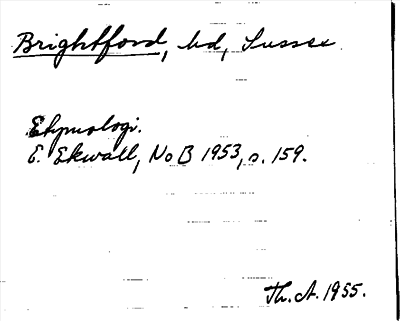 Brightford, hd, Sussex
Etymologi.
E. Ekwall, NoB 1953, s. 159.
Th. A. 1955.